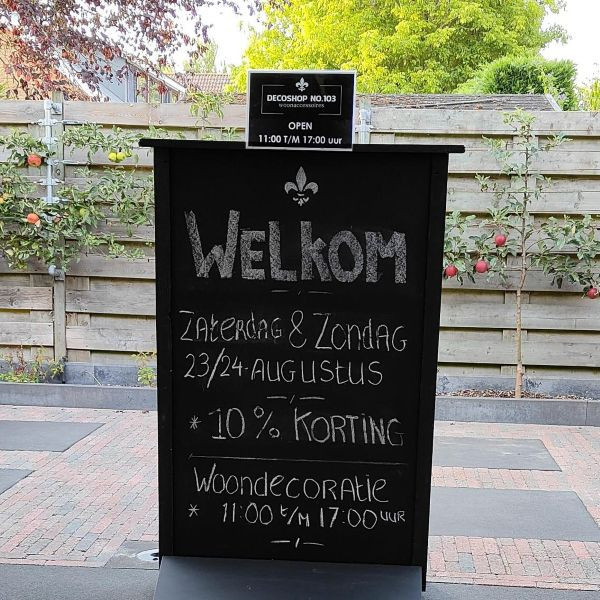 DECOSHOP NO.103
woonaccessoires
OPEN
11:00 T/M 17:00 uur
WELKOM
Zaterdag & Zondag
23/24 - AUGUSTUS
* 10 % KORTING
Woondecoratie
* 11:00 t/m 17:00 uur